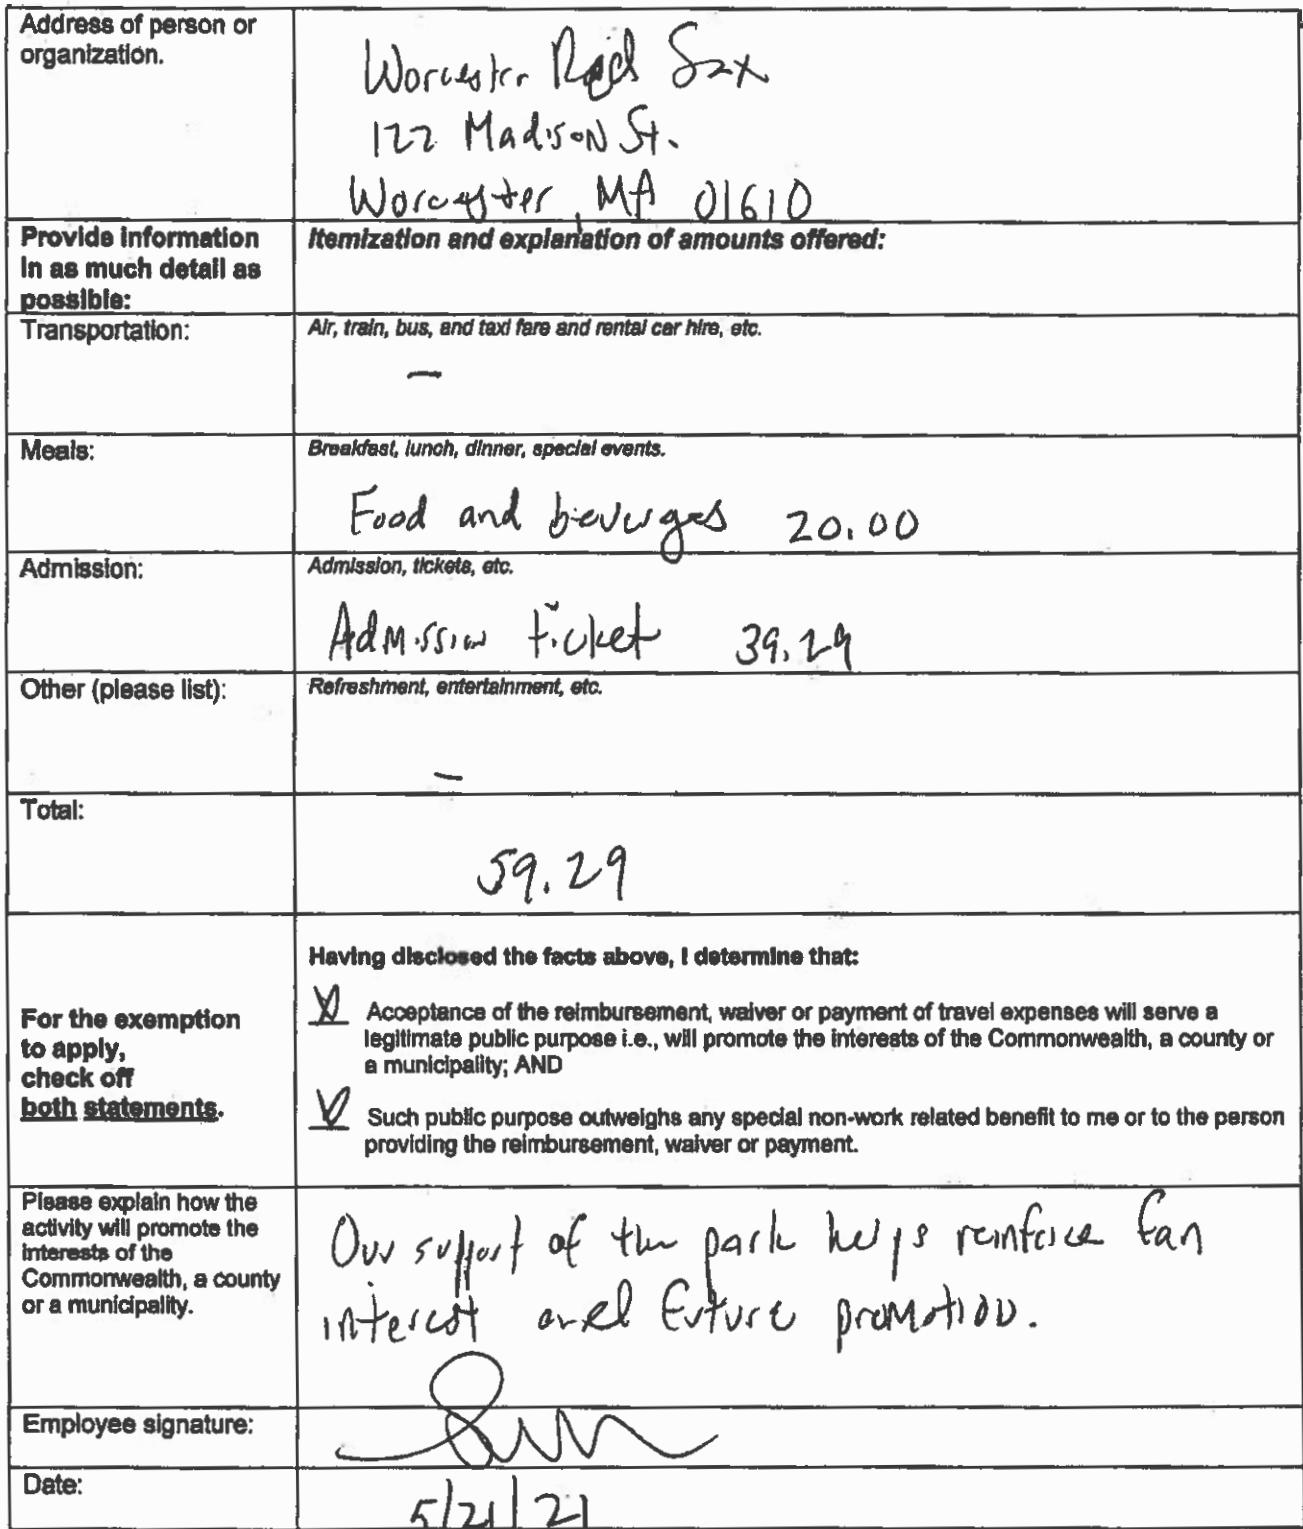 Address of person or
organization.
Worcester Red Sox
122 Madison St.
Worcester, MA 01610
Provide information
in as much detail as
possible:
Itemization and explanation of amounts offered:
Transportation:
Air, train, bus, and taxi fare and rental car hire, etc.
—
Meals:
Breakfast, lunch, dinner, special events.
Food and beverges 20.00
Admission:
Admission, tickets, etc.
Admission ticket 39.29
Other (please list):
Refreshment, entertainment, etc.
—
Total:
59.29
For the exemption
to apply,
check off
both statements.
Having disclosed the facts above, I determine that:
Acceptance of the reimbursement, waiver or payment of travel expenses will serve a
legitimate public purpose i.e., will promote the interests of the Commonwealth, a county or
a municipality; AND
Such public purpose outweighs any special non-work related benefit to me or to the person
providing the reimbursement, waiver or payment.
Please explain how the
activity will promote the
interests of the
Commonwealth, a county
or a municipality.
Our support of the park helps reinforce fan
interest and future promotion.
Employee signature:
Date:
5/21/21